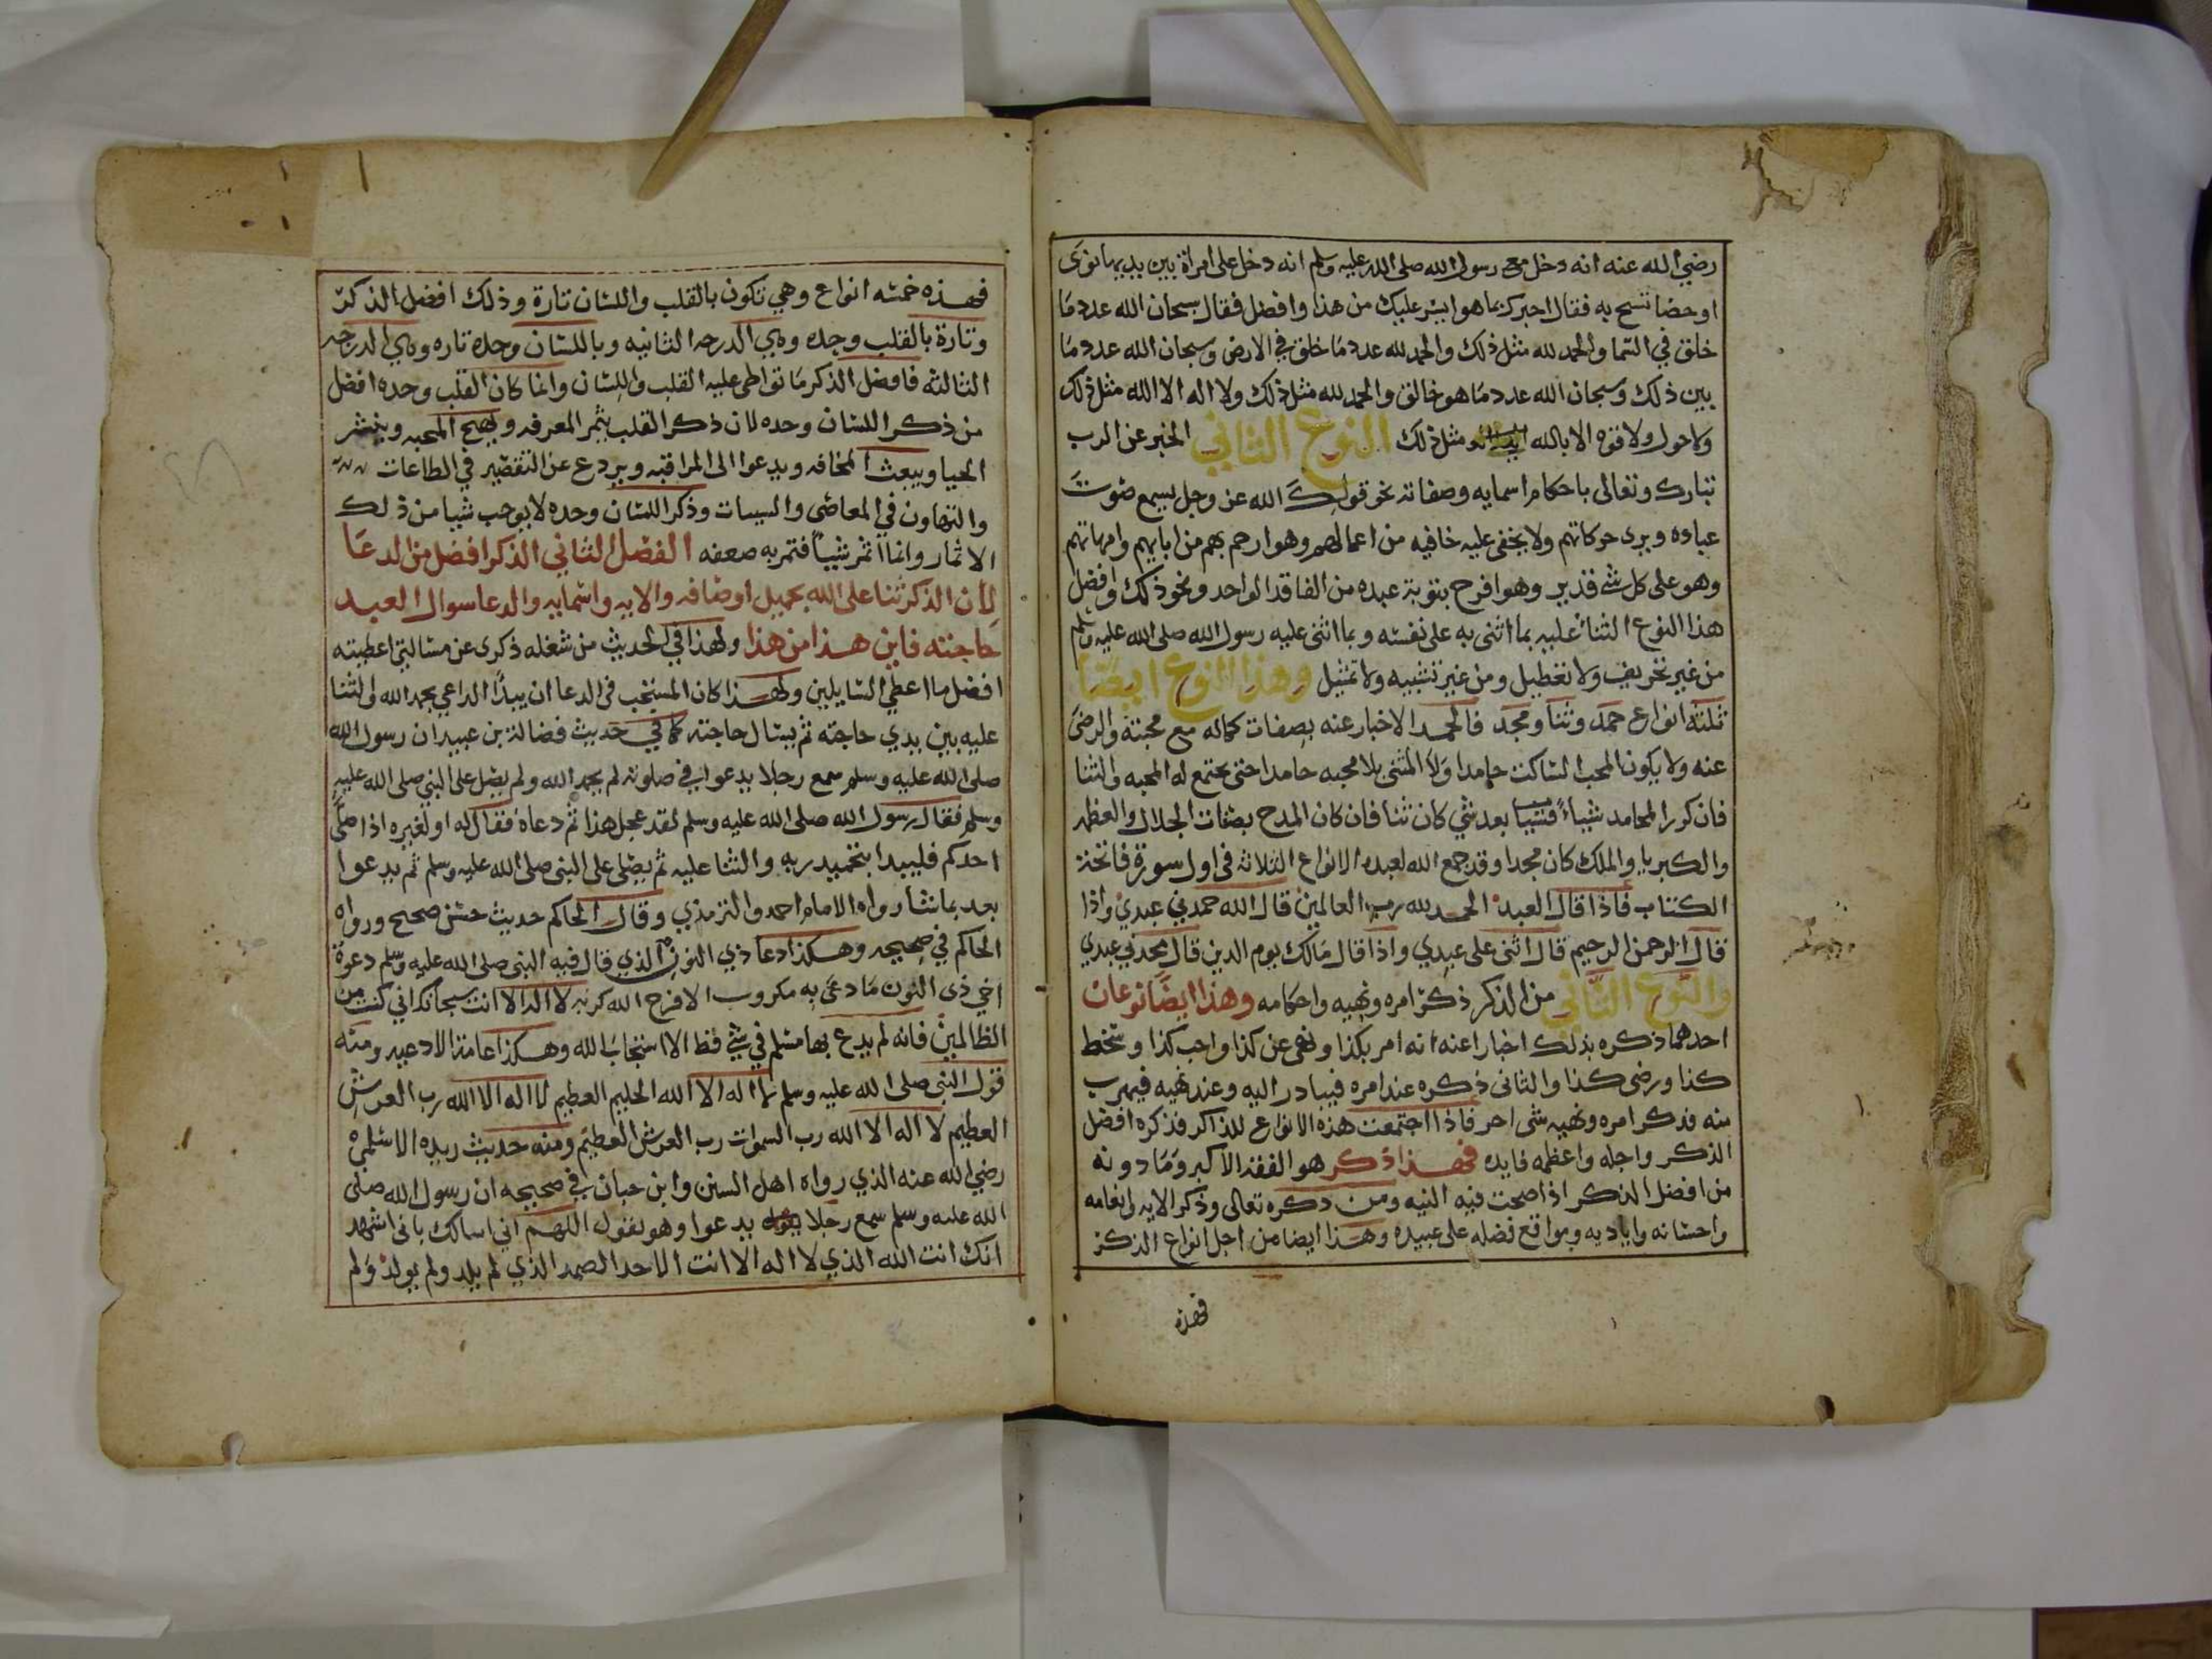 رضي الله عنه انه دخل مع رسول الله صلى الله عليه وسلم انه دخل على امراة بين يديها نوى
او حصا تسبح به فقال اخبرك بما هو ايسر عليك من هذا وافضل فقال سبحان الله عدد ما
خلق في السما والحمد لله مثل ذلك والحمد لله عدد ما خلق في الارض وسبحان الله عدد ما
بين ذلك وسبحان الله عدد ما هو خالق والحمد لله مثل ذلك ولا اله الا الله مثل ذلك
ولا حول ولا قوه الا بالله مثل ذلك النوع الثاني الخبر عن الرب
تبارك وتعالى باحكام اسمايه وصفاته نحو قولك الله عز وجل يسمع صوت
عباده ويرى حركاتهم ولا يخفى عليه خافيه من اعمالهم وهو ارحم بهم من ابايهم وامهاتهم
وهو على كل شي قدير وهو افرح بتوبة عبده من الفاقد الواحد ونحو ذلك وافضل
هذا النوع الثنا عليه بما اثنى به على نفسه وبما اثنى عليه رسول الله صلى الله عليه وسلم
من غير تحريف ولا تعطيل ومن غير تشبيه ولا تمثيل وهذا النوع ايضا
ثلثه انواع حمد وثنا ومجد فالحمد الاخبار عنه بصفات كماله مع محبته والرضى
عنه ولا يكون المحب الساكت حامدا ولا المثنى بلا محبه حامدا حتى يجتمع له المحبه والثنا
فان كرر المحامد شيا فشيا بعد شي كان ثنا فان كان المدح بصفات الجلال والعظمه
والكبريا والملك كان مجدا وقد جمع الله لعبده الانواع الثلاثه في اول سورة فاتحة
الكتاب فاذا قال العبد الحمد لله رب العالمين قال الله حمدني عبدي واذا
قال الرحمن الرحيم قال اثنى على عبدي واذا قال مالك يوم الدين قال مجدني عبدي
والنوع الثاني من الذكر ذكر امره ونهيه واحكامه وهذا ايضا نوعان
احدهما ذكره بذلك اخبارا عنه انه امر بكذا ونهى عن كذا واحب كذا وسخط
كذا ورضى كذا والثانى ذكره عند امره فيبادر اليه وعند نهيه فيهرب
منه فذكر امره ونهيه شى اخر فاذا اجتمعت هذه الانواع للذاكر فذكره افضل
الذكر واجله واعظمه فايده فهذا ذكر هو الفقه الاكبر وما دونه
من افضل الذكر اذا صحت فيه النيه ومن ذكره تعالى وذكر الايه وانعامه
واحسانه واياديه ومواقع فضله على عبيده وهذا ايضا من اجل انواع الذكر
فهذه
فهذه خمسه انواع وهي تكون بالقلب واللسان تارة وذلك افضل الذكر
وتارة بالقلب وحده وهي الدرجه الثانيه وباللسان وحده تاره وهي الدرجه
الثالثه فافضل الذكر ما تواطى عليه القلب واللسان وانما كان القلب وحده افضل
من ذكر اللسان وحده لان ذكر القلب يثمر المعرفه ويهيج المحبه ويثير
الحيا ويبعث المخافه ويدعوا الى المراقبه ويردع عن التقصير في الطاعات
والتهاون في المعاصي والسيات وذكر اللسان وحده لا يوجب شيا من ذلك
الاثمار وانما اثمر شييا فثمربه ضعفه الفصل الثاني الذكر افضل من الدعا
لأن الذكر ثنا على الله بجميل اوصافه والايه واسمايه والدعا سوال العبد
حاجته فاين هذا من هذا ولهذا في الحديث من شغله ذكرى عن مسالتي اعطيته
افضل ما اعطي السايلين ولهذا كان المستحب فى الدعا ان يبدأ الداعي بحمد الله والثنا
عليه بين يدي حاجته ثم يسال حاجته كما في حديث فضالة بن عبيد ان رسول الله
صلى الله عليه وسلم سمع رجلا يدعوا في صلوته لم يحمد الله ولم يصل على النبي صلى الله عليه
وسلم فقال رسول الله صلى الله عليه وسلم لقد عجل هذا ثم دعاه فقال له او لغيره اذا صلى
احدكم فليبدا بتحميد ربه والثنا عليه ثم يصلى على النبى صلى الله عليه وسلم ثم يدعوا
بعد بما شا رواه الامام احمد والترمذي وقال الحاكم حديث حسن صحيح ورواه
الحاكم في صحيحه وهكذا دعا ذي النون الذي قال فيه النبى صلى الله عليه وسلم دعوة
اخي ذى النون ما دعى به مكروب الا فرج الله كربه لا اله الا انت سبحانك اني كنت من
الظالمين فانه لم يدع بها مسلم في شي قط الا استجاب الله وهكذا عامة الادعيه ومنه
قول النبى صلى الله عليه وسلم لا اله الا الله الحليم العظيم لا اله الا الله رب العرش
العظيم لا اله الا الله رب السموات رب العرش العظيم ومنه حديث بريده الاسلمى
رضي الله عنه الذي رواه اهل السنن وابن حبان في صحيحه ان رسول الله صلى
الله عليه وسلم سمع رجلا يدعوا وهو يقول اللهم اني اسالك بانى اشهد
انك انت الله الذي لا اله الا انت الاحد الصمد الذي لم يلد ولم يولد ولم